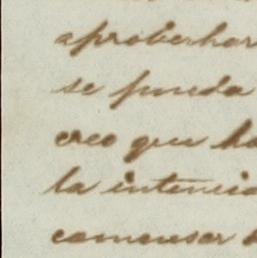 aproberhar
se pueda
creo que ha
la intencio
comensar